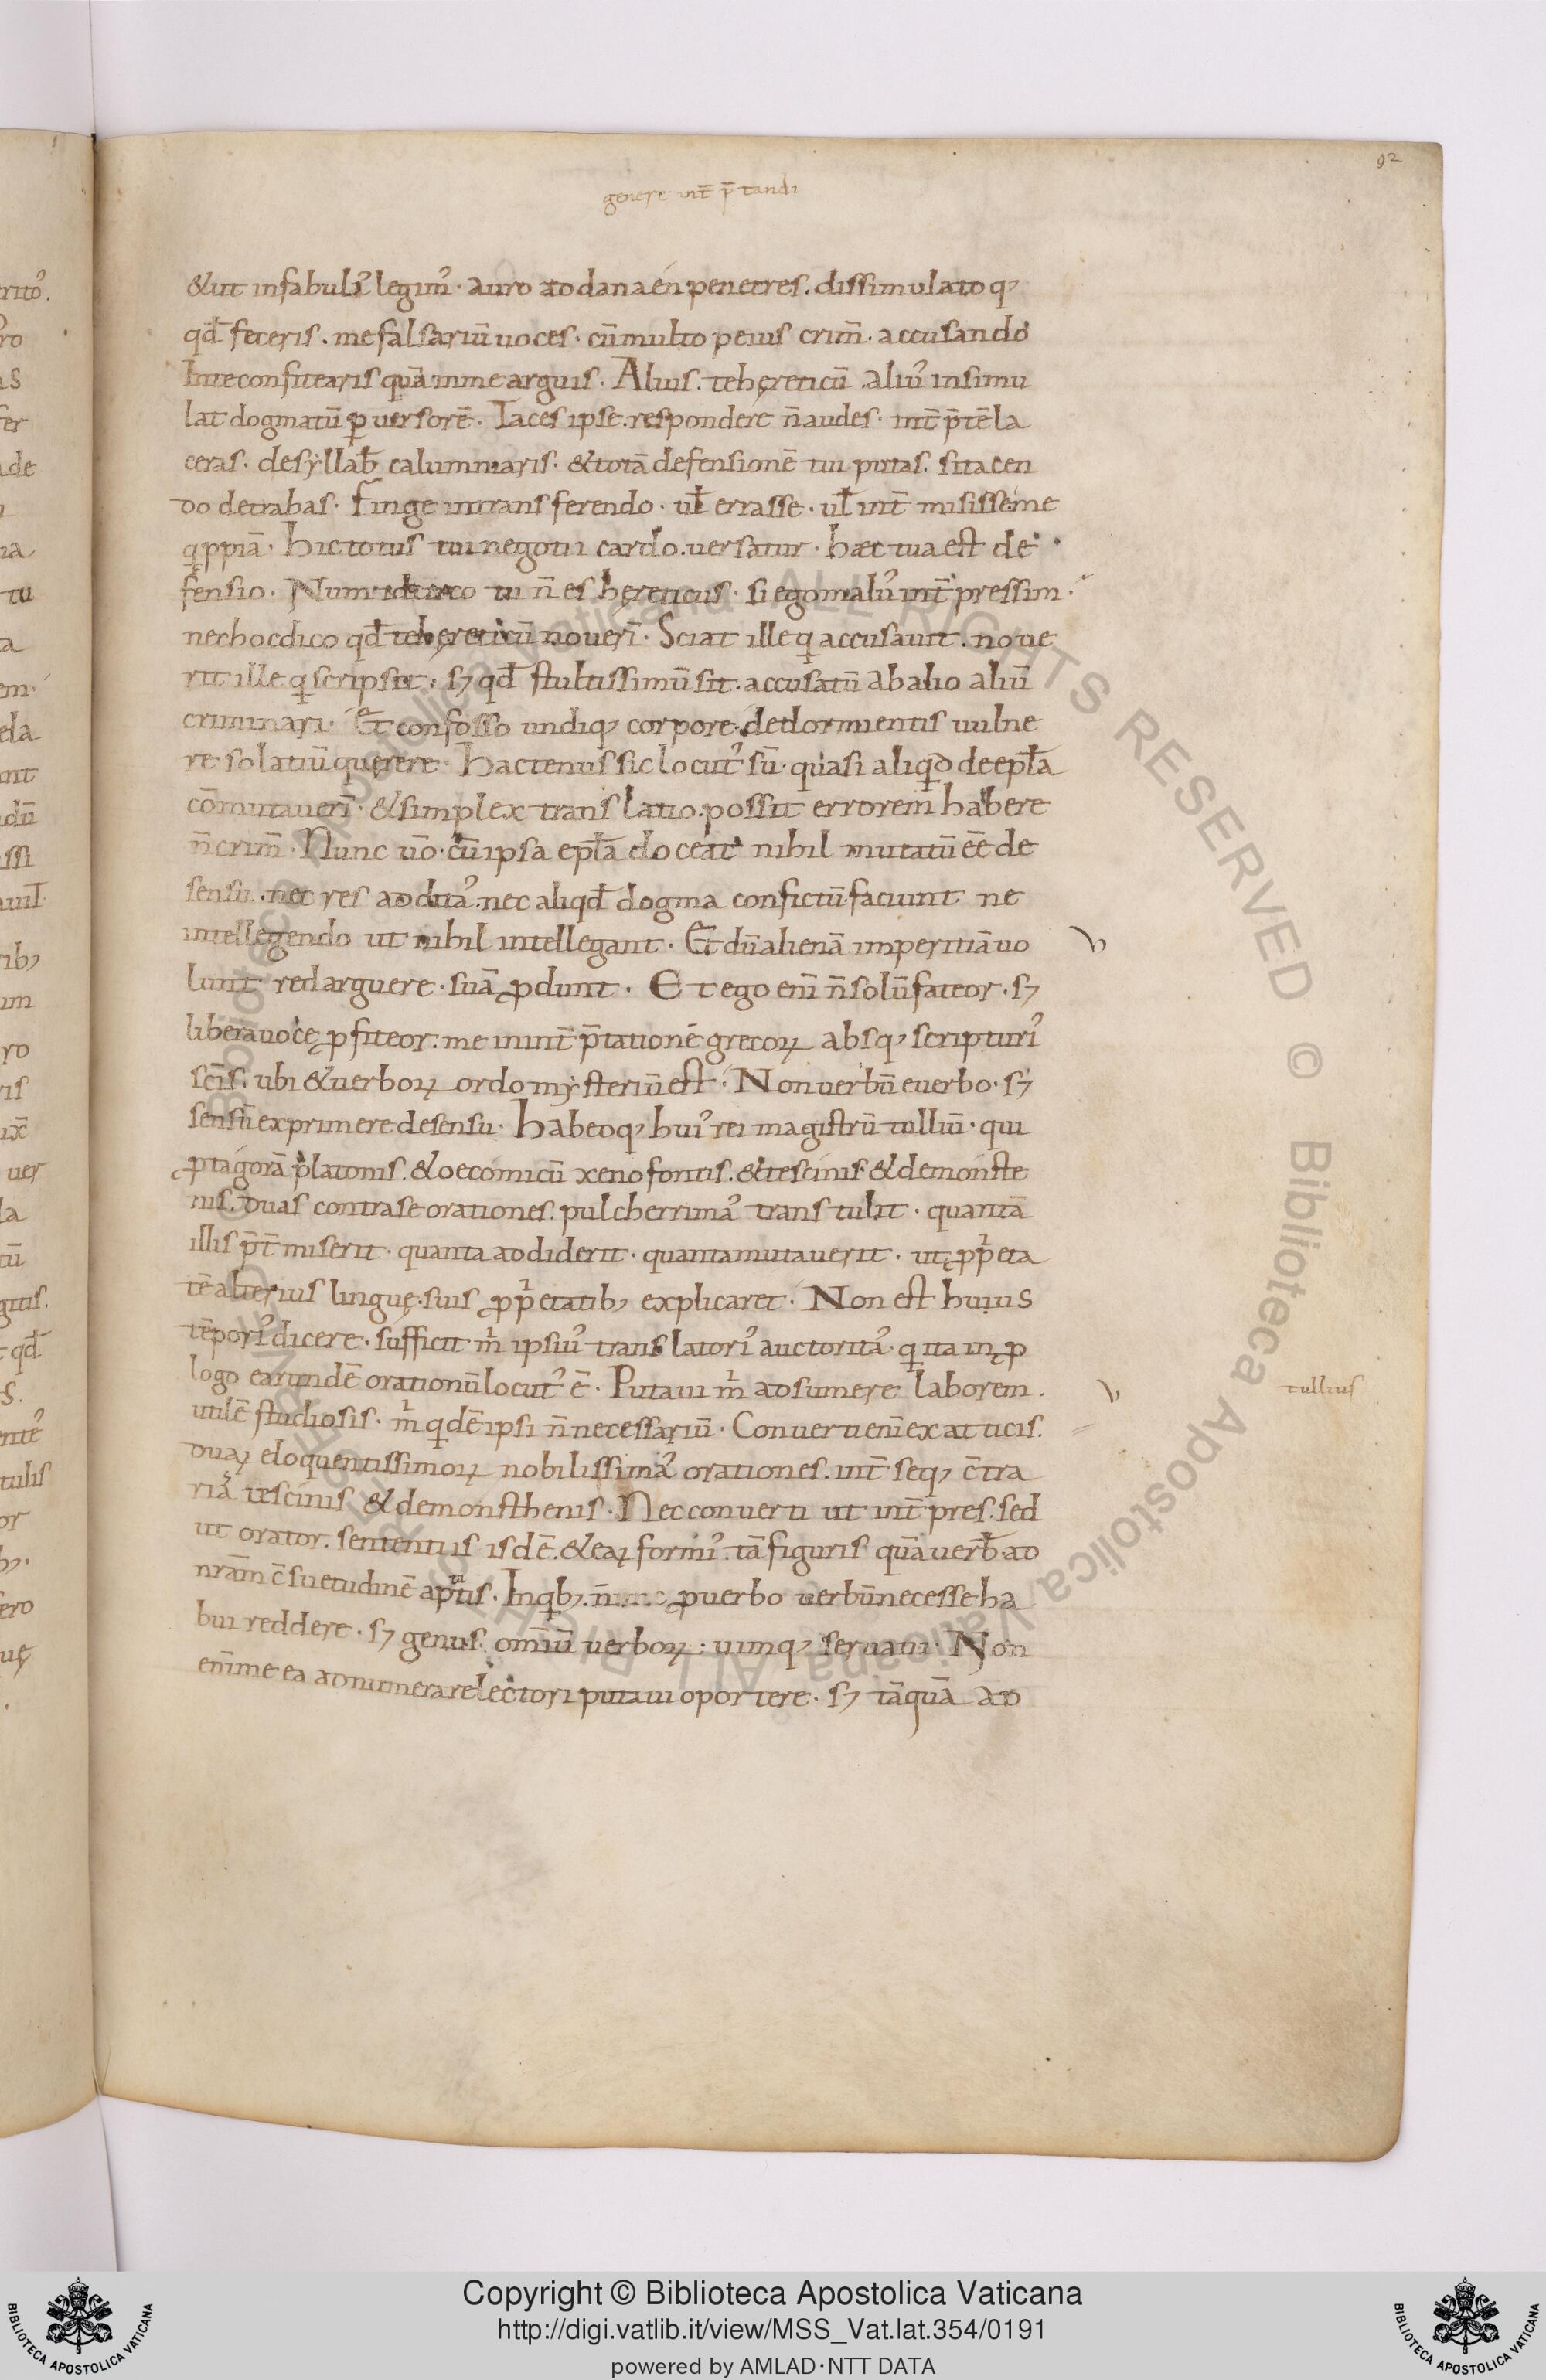 92
genere int̄ p̄tandi
&ut infabulis legim᾿. auro ad dana en penetres. dissimulatoq;
qđ feceris. me falsariū uoces. cū multo peius crim̄. accusando
Inte confitearis quā inme arguis. Alius. te hęreticū. aliu᾿ insimu
lat dogmatū ꝑuersorē. Taces ipse. respondere n̄ audes. int̄p̄tē la
ceras. de syllab̄ calumniaris. &totā defensionē tui putas. si tacen
do detrahas. Finge in transferendo. ul̄ errasse. ul̄ int̄ misisse me
qppiā. Hic totus tui negotii cardo. uersatur. hæc tua est de
fensio. Num idcirco tu n̄ es hęreticus. si ego malu᾿ int̄pres sim.
nec hoc dico qđ te hęreticū nouerī. Sciat ille q accusauit. noue
rit ille q scripsit; sꝫ qđ stultissimū sit. accusatū ab alio aliū
criminari. Et confosso undiq; corpore. de dormientis uulne
re solatiū querere. Hactenus sic locut᾿ sū. quasi aliqd de epl̄a
cōmutauerī. &simplex translatio. possit errorem habere
n̄ crim̄. Nunc ūo. cū ipsa epl̄a doceat nihil mutatū eē de
sensu. nec res addita᾿. nec aliqđ dogma confictū. faciunt ne
intellegendo ut nihil intellegant. Et dū alienā imperitiā uo
lunt redarguere. suā ꝓdunt. Et ego enī n̄ solū fateor. sꝫ
libera uoce ꝓfiteor. me in int̄p̄tationē grecoꝝ absq; scripturi᾿
sc̄is. ubi &uerboꝝ ordo mysteriū est. Non uerbū e uerbo. sꝫ
sensū exprimere de sensu. Habeoq; hui᾿ rei magistrū tulliū. qui
ꝓtagorā platonis. &oecomicū xenofontis. &tescinis &demonste
nis. duas contra se orationes. pulcherrima᾿ transtulit. quantā
illis p̄t̄miserit. quanta addiderit. quanta mutauerit. ut ꝓpⁱeta
tē alterius linguę. suis ꝓpⁱetatib; explicaret. Non est huius
tēpori᾿ dicere. sufficit mⁱ ipsiu᾿ translatori᾿ auctorita᾿. q ita in ꝓ
logo earundē orationū locut᾿ ē. Putaui mⁱ adsumere laborem.
tullius
utilē studiosis. mⁱ qdē ipsi n̄ necessariū. Conuerti enī ex atticis.
duaꝝ eloquentissimoꝝ nobilissima᾿ orationes. int̄ seq; c̄tra
ria᾿ tescinis &demonsthenis. Nec conuerti ut int̄pres. sed
ut orator. sententiis isdē. &eaꝝ formi᾿. tā figuris quā uerb̄ ad
nr̄am c̄suetudinē aptis. Inqb;. n̄ ꝓ uerbo uerbū necesse ha
bui reddere. sꝫ genus omīū uerboꝝ: uimq; seruaui. Non
enī me ea adnumerare lectori putaui oportere. sꝫ tāquā ad
Copyright © Biblioteca Apostolica Vaticana
http://digi.vatlib.it/view/MSS_Vat.lat.354/0191
powered by AMLAD·NTT DATA